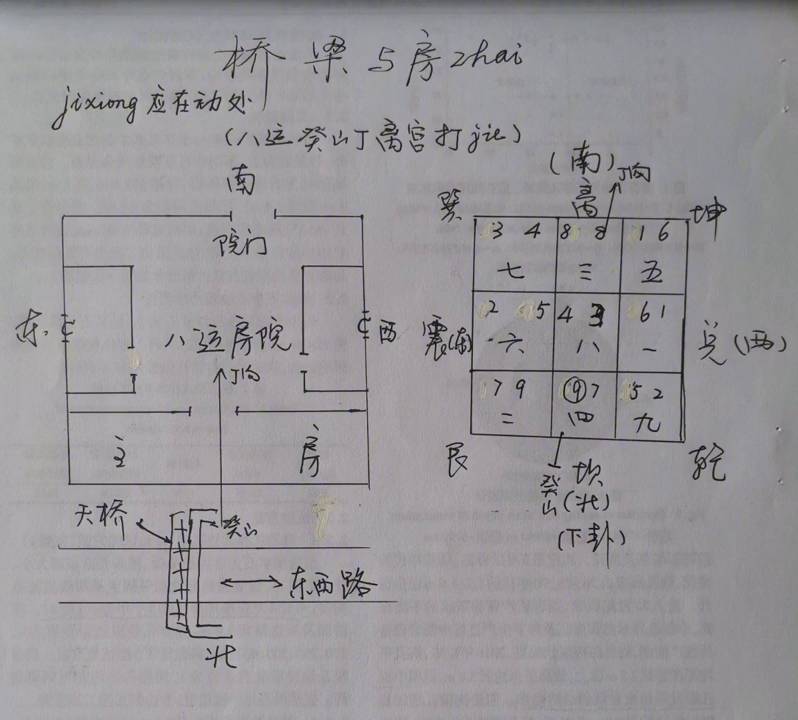 桥梁与房zhai
jixiong应在动处
(八运癸山丁离宫打jie)
南
院门
东
八运房院
西
丁向
主
房
天桥
癸山
东西路
北
(南)
丁向
巽
离
坤
3 4
8 8
1 6
七
三
五
震(东)
2 5
4 3
6 1
六
八
一
兑(西)
7 9
⑨7
5 2
二
四
九
艮
乾
癸山
坎
(北)
(下卦)